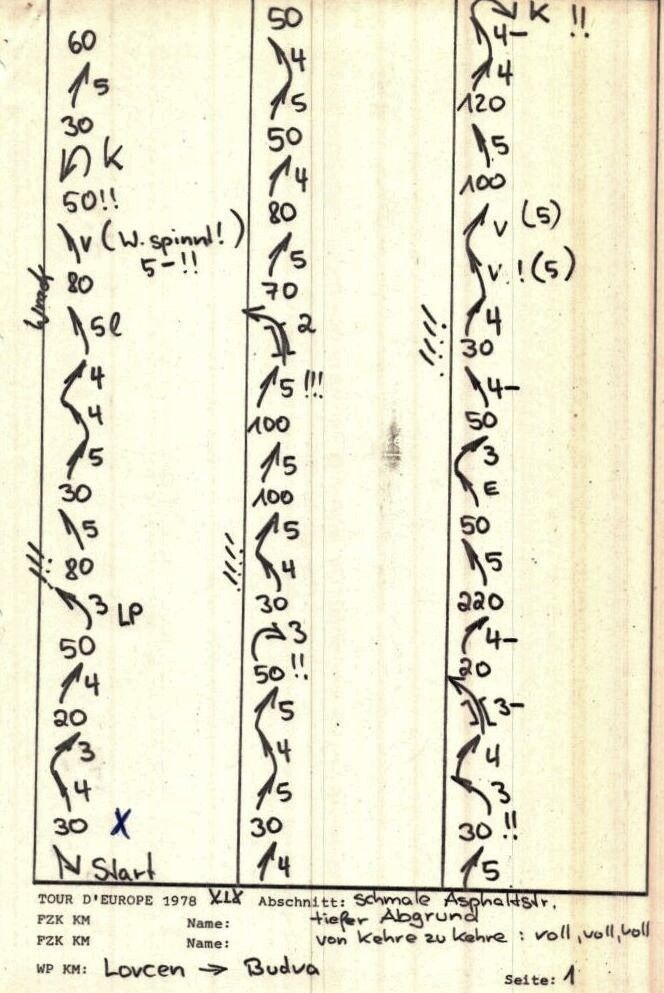 60
5
30
K
50!!
v (W. spinnt!)
5-!!
80
5l
4
4
5
30
5
80
3 LP
50
4
20
3
4
30 X
Start
50
4
5
50
4
80
5
70
2
5 !!!
100
5
100
5
4
30
3
50 !!
5
4
5
30
4
K !!
4-
4
120
5
100
v (5)
v ! (5)
4
30
4-
50
3
E
50
5
220
4-
20
3-
4
3
30 !!
5
TOUR D'EUROPE 1978 XIX Abschnitt: schmale Asphaltstr.
FZK KM Name: tiefer Abgrund
FZK KM Name: von Kehre zu Kehre : voll, voll, voll
WP KM: Lovcen → Budva
Seite: 1